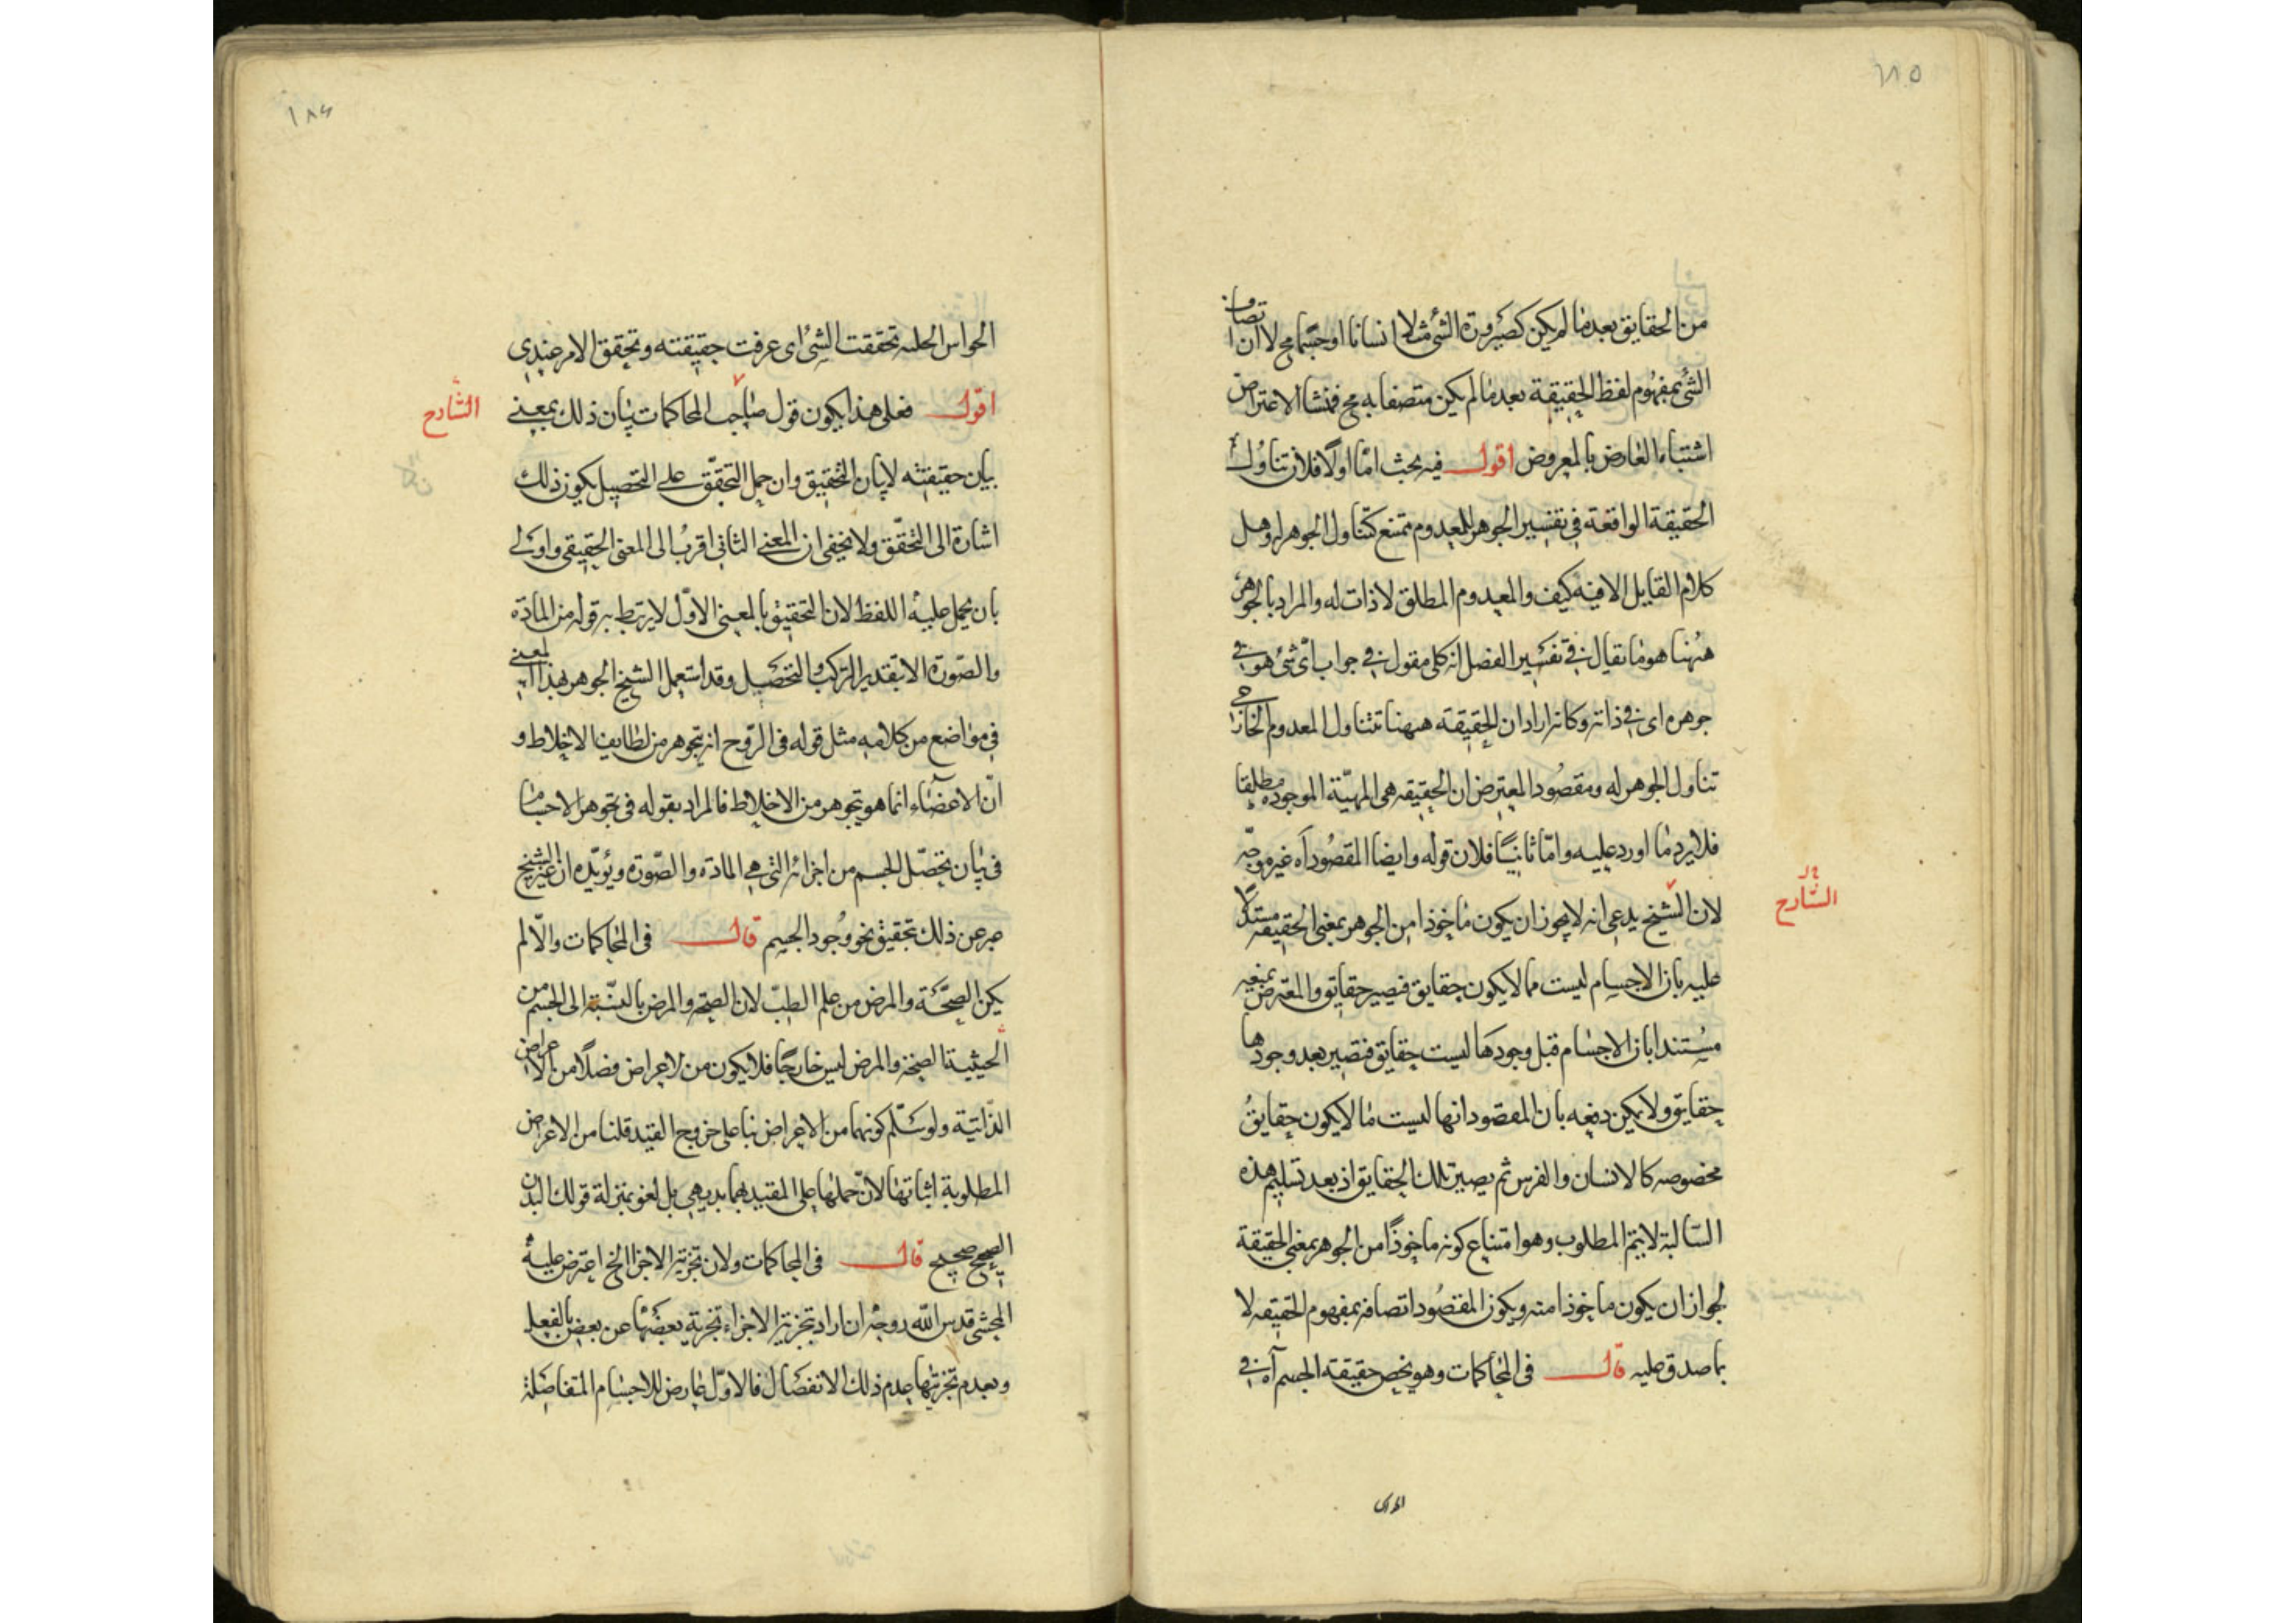 ١٨٥
من الحقايق بعد ما لم يكن كصيرورة الشئ مثلا انسانا او جسما مح لا ان اتصاف
الشئ بمفهوم لفظ الحقيقة بعد ما لم يكن متصفا به مح فمنشا الاعتراض
اشتباه العارض بالمعروض اقول فيه بحث اما اولا فلان تناول
الحقيقة الواقعة في تفسير الجوهر للمعدوم ممتنع كتناول الجوهر له وهل
كلام القايل الا فيه كيف والمعدوم المطلق لا ذات له والمراد بالجوهر
ههنا هو ما يقال في تفسير الفصل انه كلى مقول في جواب أى شئ هو في
جوهره اى في ذاته وكانه اراد ان الحقيقة ههنا تتناول المعدوم الخارجي
تناول الجوهر له ومقصود المعترض ان الحقيقه هى المهيّة الموجودة مطلقا
فلا يرد ما اورد عليه وامّا ثانيًا فلان قوله وايضا المقصود آه غير موجّه
لان الشيخ يدعى انه لا يجوز ان يكون ماخوذا من الجوهر بمعنى الحقيقة مستدلًا
الشارح
عليه بان الاجسام ليست مما لا يكون حقايق فيصير حقايق والمعترض يمنعه
مستندا بان الاجسام قبل وجودها ليست حقايق فتصير بعد وجودها
حقايق ولا يمكن دفعه بان المقصود انها ليست ما لا يكون حقايق
مخصوصه كالانسان والفرس ثم يصير تلك الحقايق اذ بعد تسليم هذه
السالبة لا يتم المطلوب وهو امتناع كونه ماخوذًا من الجوهر بمعنى الحقيقة
لجواز ان يكون ماخوذا منه ويكون المقصود اتصافه بمفهوم الحقيقه لا
بما صدق عليه قال فى المحاكمات وهو يخص حقيقة الجسم آه في
١٨٤
الحواس تحققت الشئ اى عرفت حقيقته وتحقق الامر عندى
اقول فعلى هذا يكون قول صاحب المحاكمات بيان ذلك بمعنى
الشارح
بيان حقيقته لا بيان التحقيق وان حمل التحقّق على التحصيل يكون ذلك
اشارة الى التحقّق ولا يخفى ان المعنى الثانى اقرب الى المعنى الحقيقى واولى
بان يحمل عليه اللفظ لان التحقيق بالمعنى الاوّل لا يرتبط به قوله من المادّة
والصّورة الا بتقدير التركب والتحصيل وقد استعمل الشيخ الجوهر بهذا المعنى
في مواضع من كلامه مثل قوله فى الرّوح انه يتجوهر من لطايف الاخلاط و
انّ الاعضاء انما هو يتجوهر من الاخلاط فالمراد بقوله فى تجوهر الاجسام
فى بيان تحصّل الجسم من اجزائه التى هى المادّة والصّورة ويؤيّده ان الشيخ
عبر عن ذلك بتحقيق نحو وجود الجسم قال فى المحاكمات والّا لم
يكن الصحّة والمرض من علم الطبّ لان الصحّة والمرض بالنّسبة الى الجسم من
الحيثية الصحّة والمرض ليس خارجًا فلا يكون من الاعراض فضلًا من الاعراض
الذّاتيّة ولو سلّم كونهما من الاعراض بناء على خروج القيد قلنا من الاعراض
المطلوبة اثباتها لانّ حملها على المقيد بهما بديهى بل لغو بمنزلة قولك البدن
الصحيح صحيح قال فى المحاكمات ولان تجزية الاجزا الخ اعترض عليه
المحشى قدس الله روحه ان اراد بتجزية الاجزاء تجزية بعضها عن بعض بالفعل
وبعدم تجزيتها عدم ذلك الانفصال فالاوّل عارض للاجسام المتفاصلة